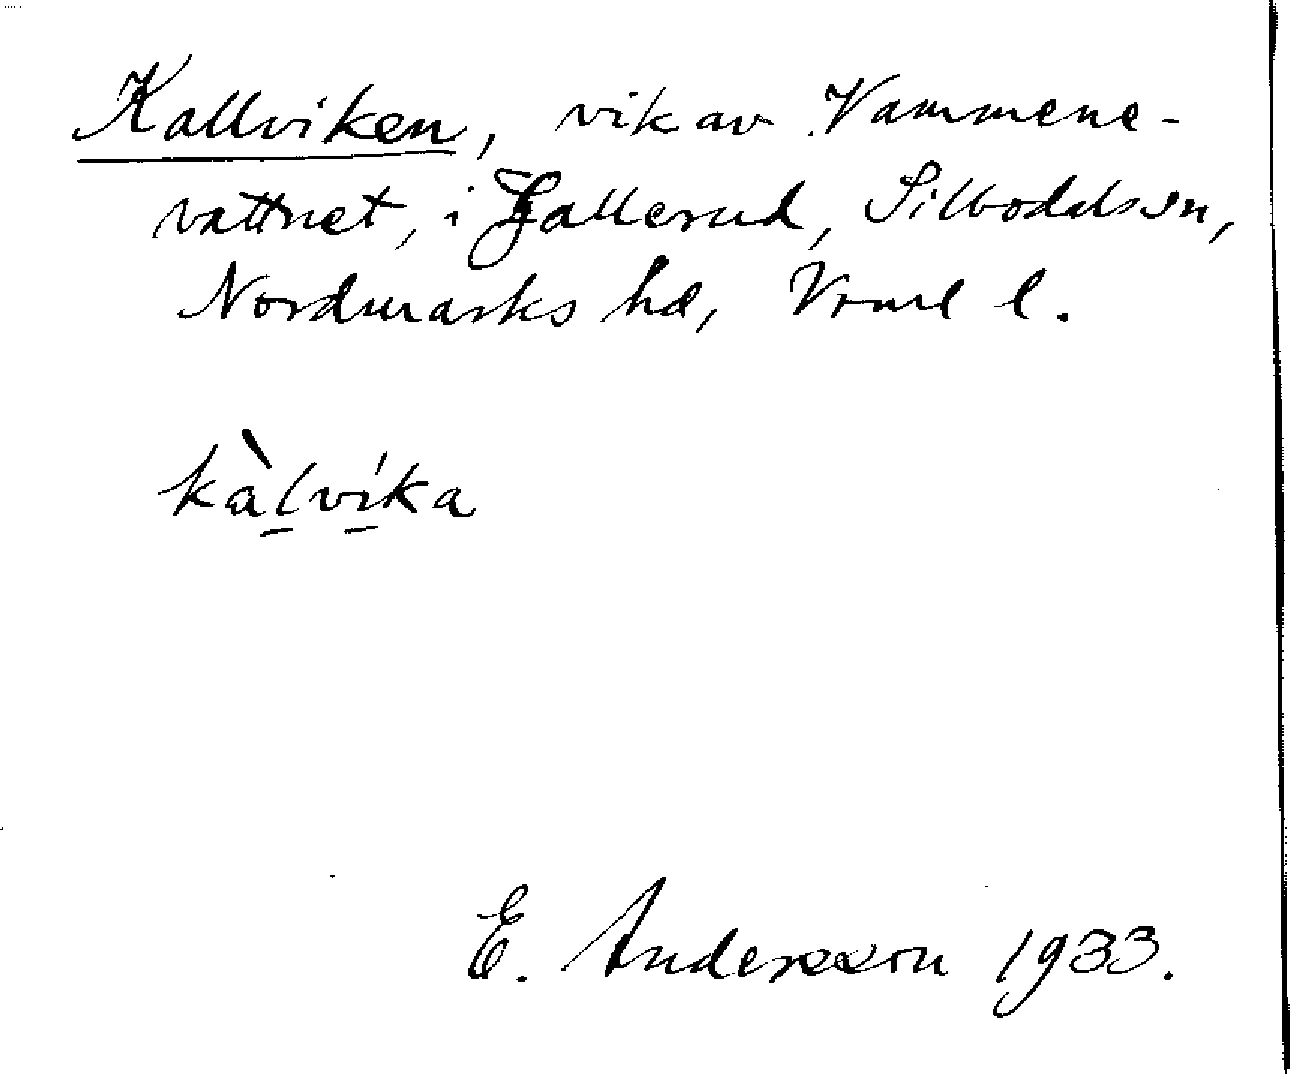 Kallviken, vik av Vammene-
vattnet, i Hallerud, Silbodals sn,
Nordmarks hd, Vrml l.
kàlvíka
E. Andersson 1933.